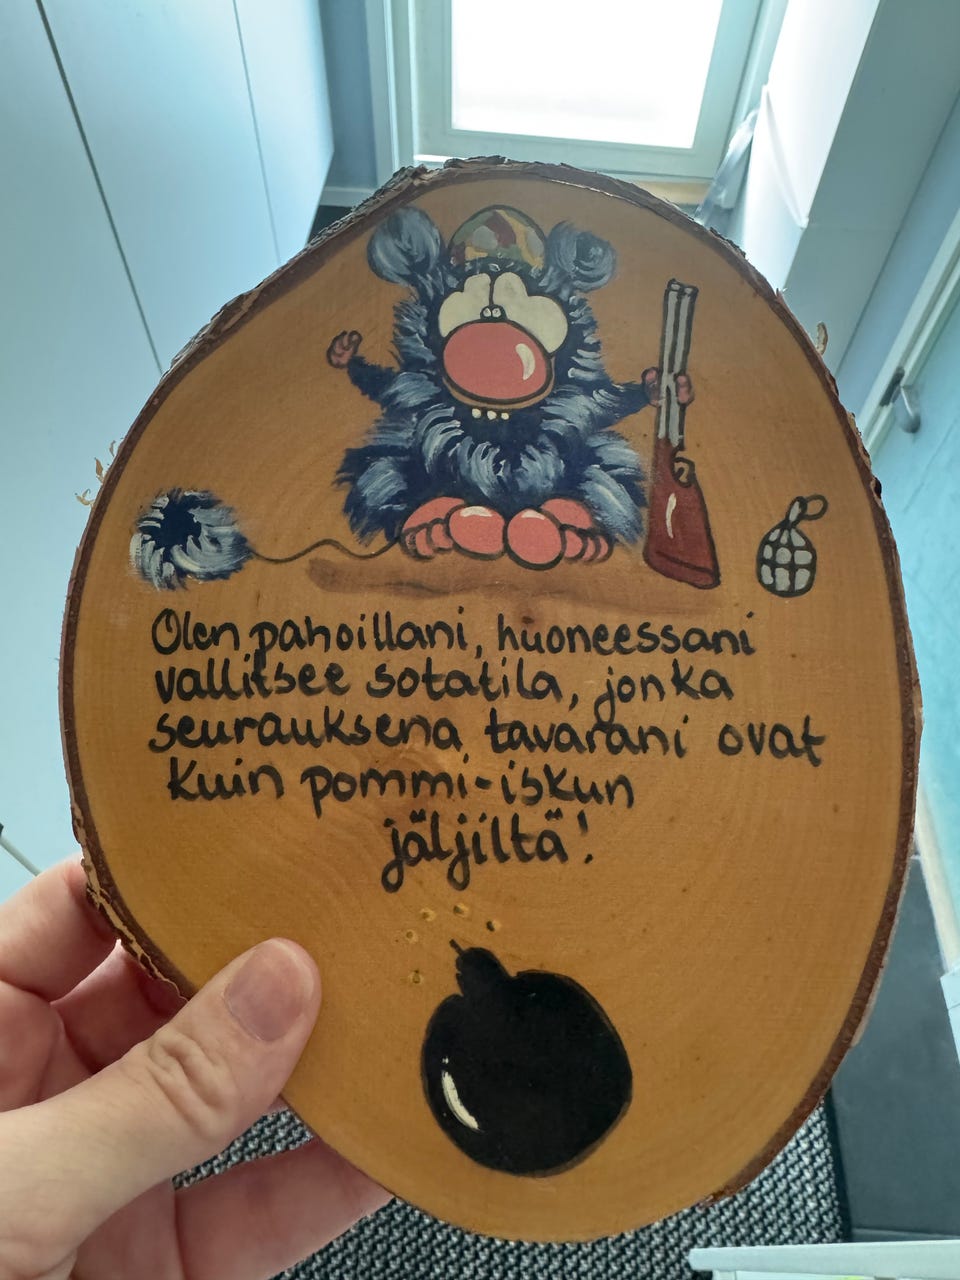 Olen pahoillani, huoneessani
vallitsee sotatila, jonka
seurauksena tavarani ovat
kuin pommi-iskun
jäljiltä!